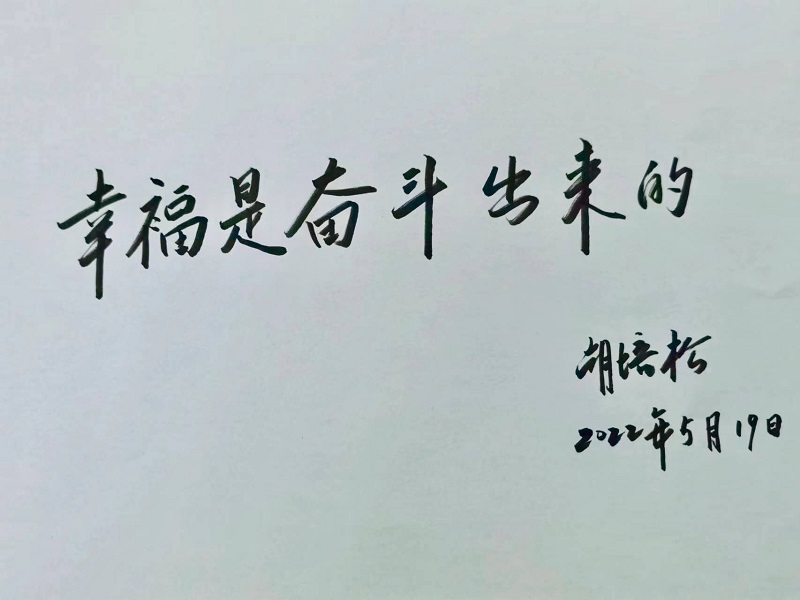 幸福是奋斗出来的
胡培松
2022年5月19日